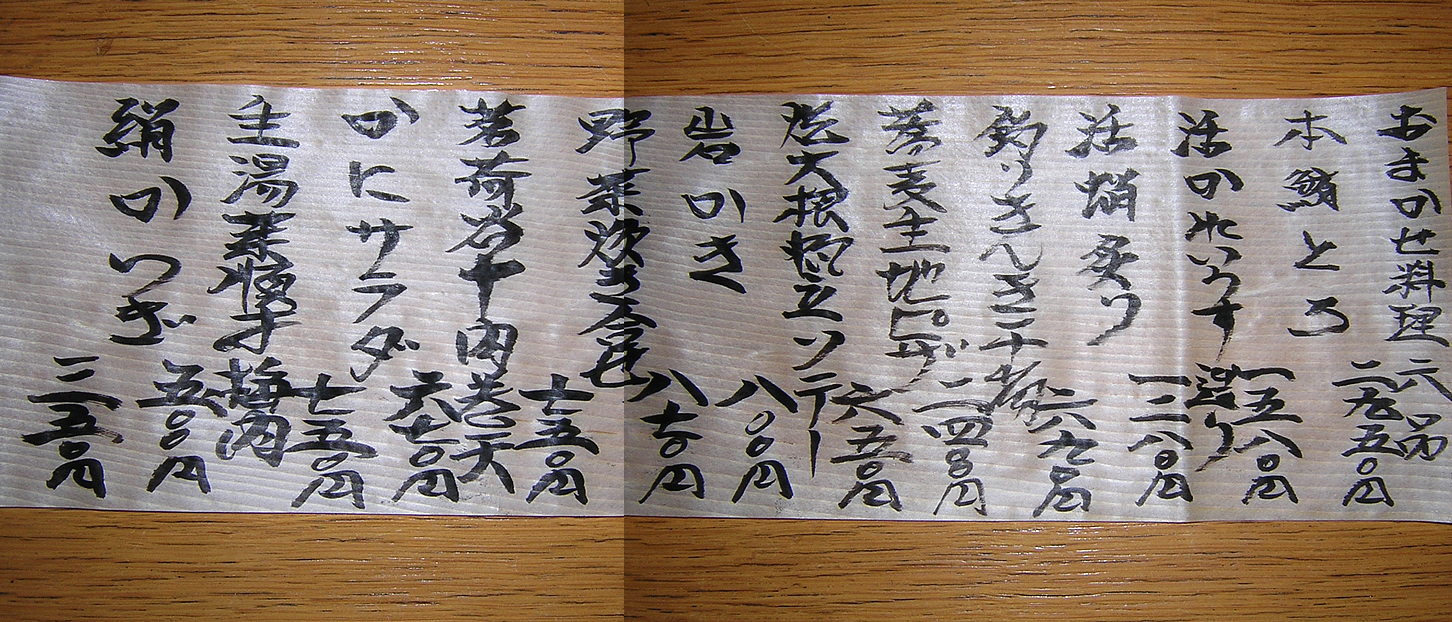 おまかせ料理六品
二九五〇円
本鮪とろ
一五八〇円
活かれいうす造り
一二八〇円
活蛸炙り
六九〇円
釣りきんき一干焼
二四〇〇円
蕎麦生地ピザ
六五〇円
大根 ソテー
八〇〇円
岩かき
八七〇円
野菜炊き合せ
七五〇円
茗荷 肉巻天
六七〇円
かにサラダ
七五〇円
生湯葉順才梅肉
五〇〇円
絹かつぎ
三五〇円